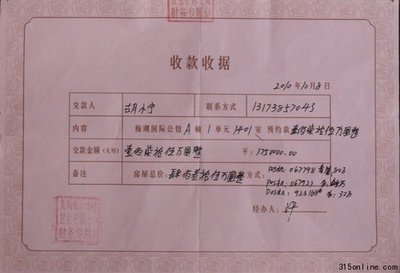 收款收据
2010年10月8日
交款人 胡小宁 联系方式 13173857043
内容 梅湖国际公馆A幢1单元1401室 预约款 壹佰柒拾伍万圆整
交款金额(大写) 壹佰柒拾伍万圆整 ¥:1750000.00
备注 房屋总价: 肆佰壹拾伍万圆整 POS机:067798
POS机:067921
POS机:923168 30万
经办人:
315online.com